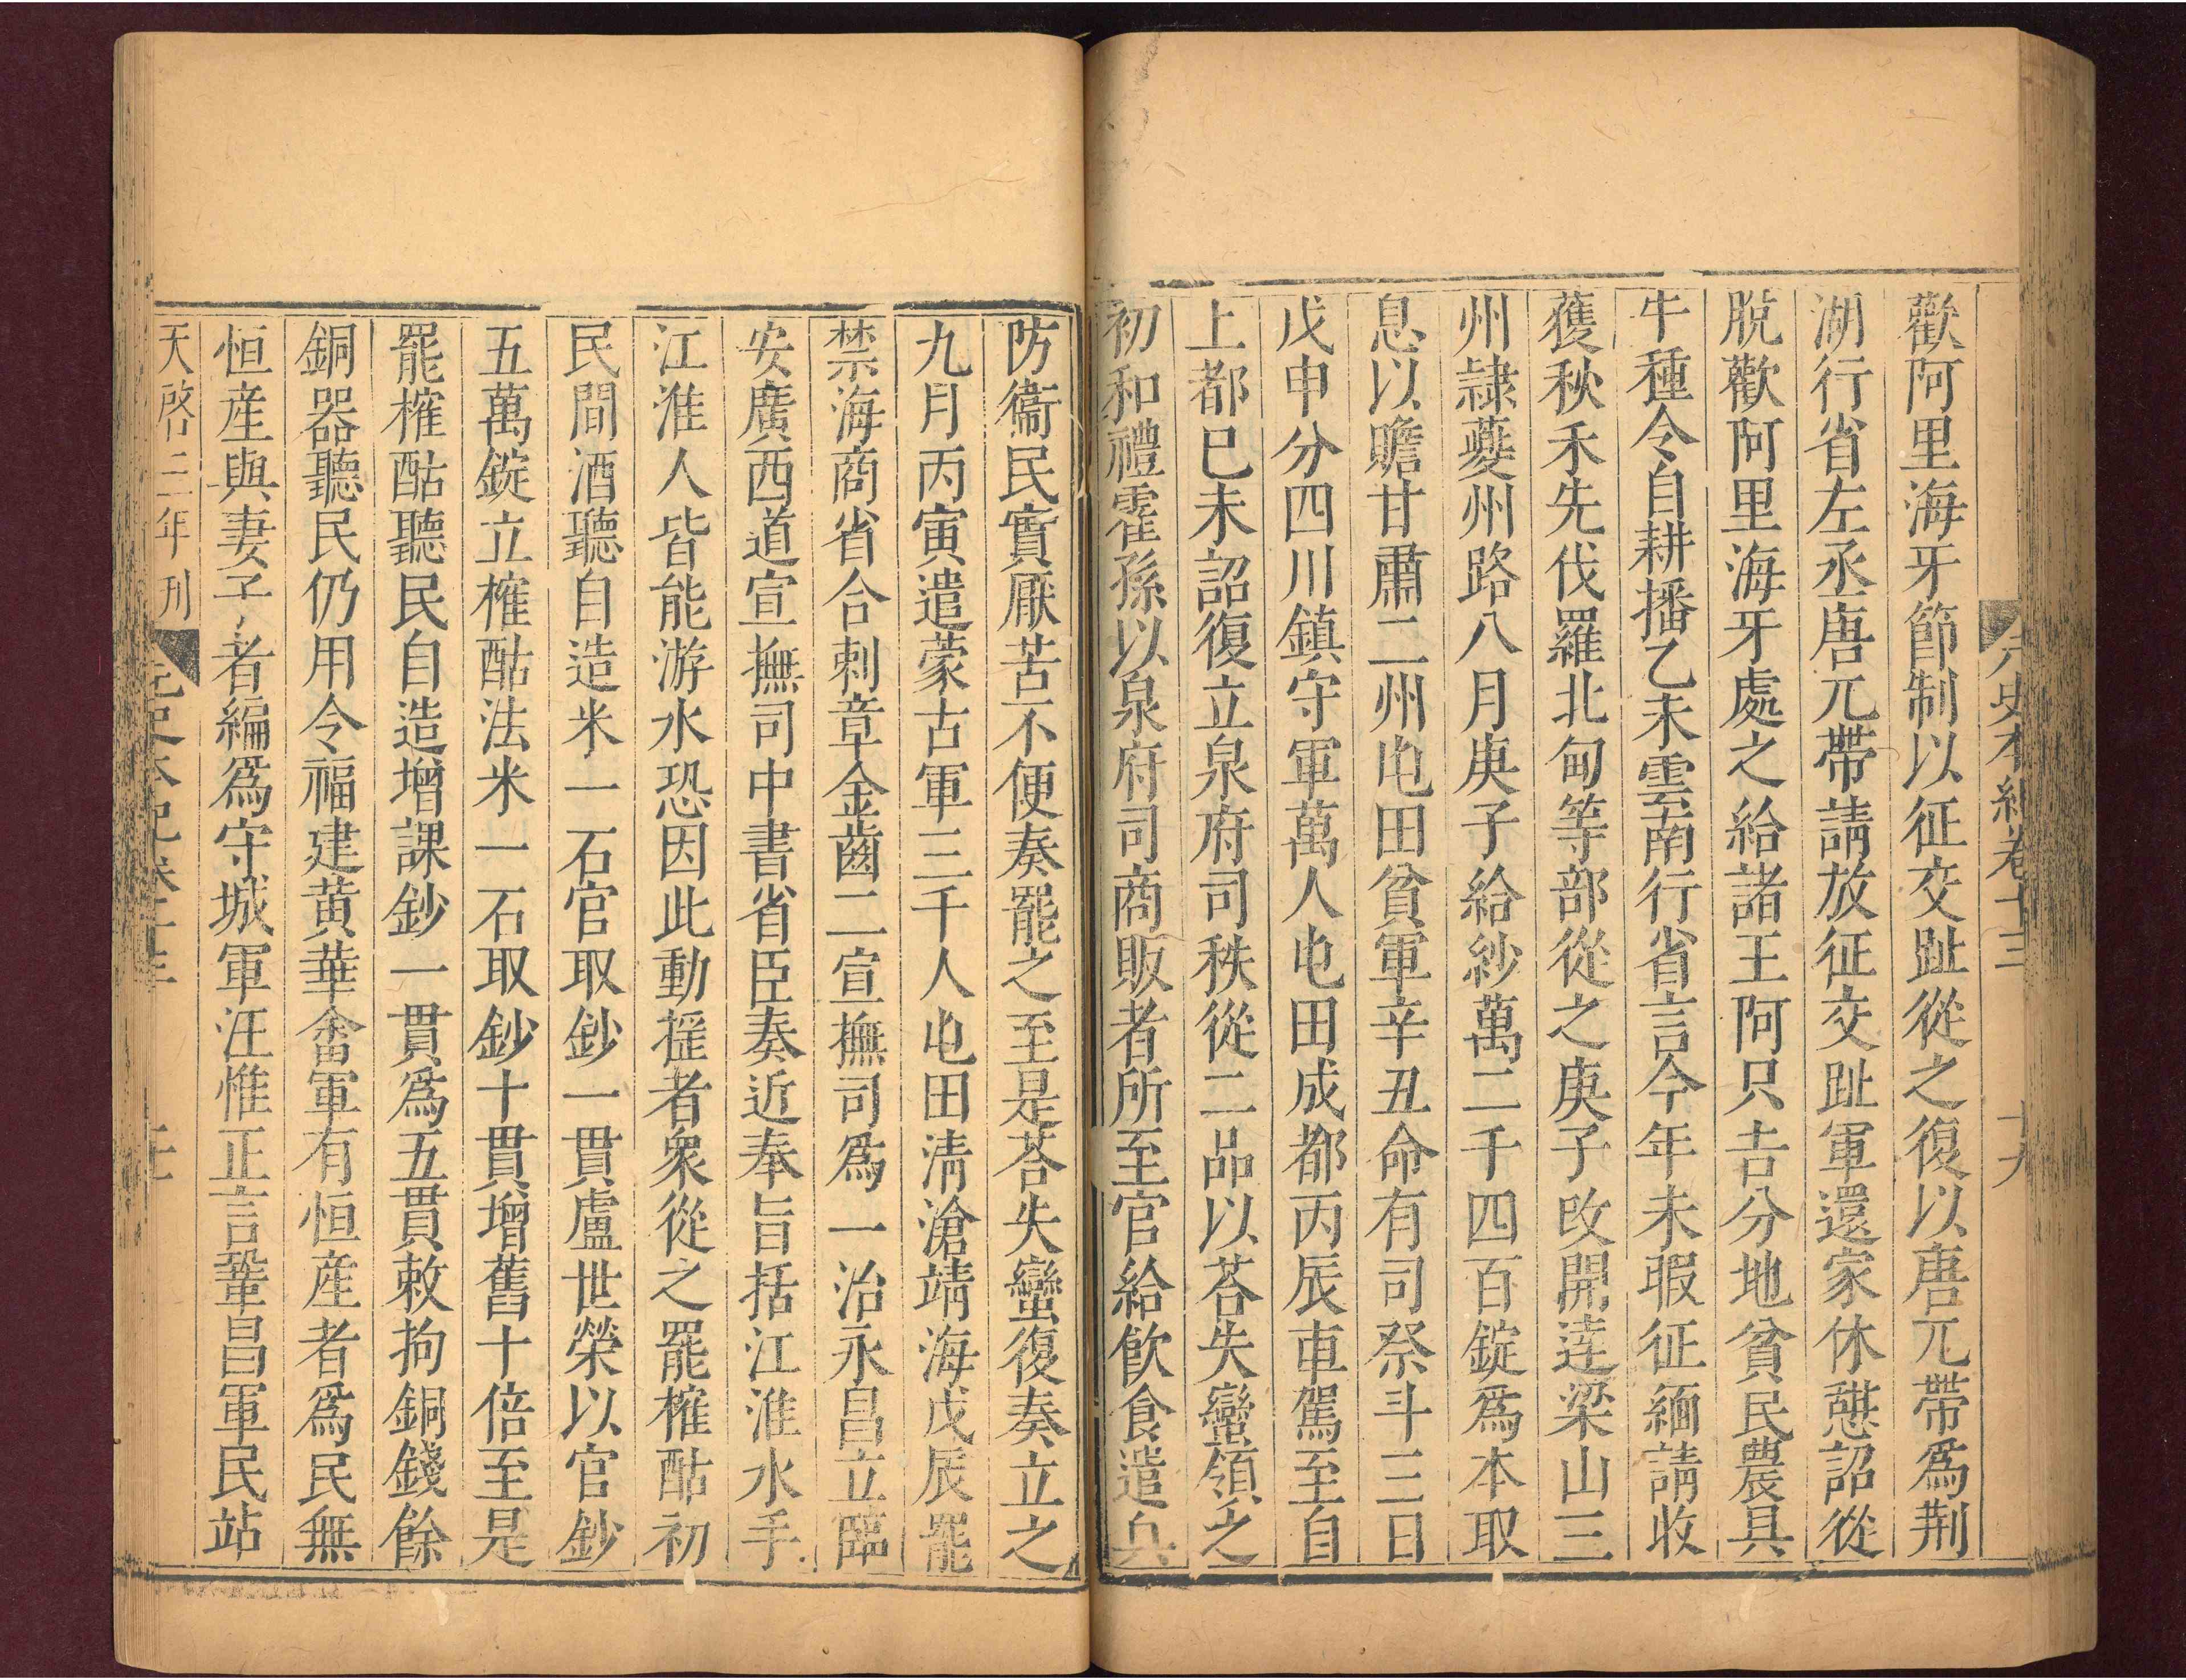 元史本紀卷十三 十九
歡阿里海牙節制以征交趾從之復以唐兀帶爲荆
湖行省左丞唐兀帶請放征交趾軍還家休憇詔從
脫歡阿里海牙處之給諸王阿只吉分地貧民農具
牛種令自耕播乙未雲南行省言今年未暇征緬請收
獲秋禾先伐羅北甸等部從之庚子改開達梁山三
州隷夔州路八月庚子給鈔萬二千四百錠爲本取
息以贍甘肅二州屯田貧軍辛丑命有司祭斗三日
戊申分四川鎮守軍萬人屯田成都丙辰車駕至自
上都己未詔復立泉府司秩從二品以荅失蠻領之
初和禮霍孫以泉府司商販者所至官給飲食遣兵
防衞民實厭苦不便奏罷之至是荅失蠻復奏立之
九月丙寅遣蒙古軍三千人屯田清滄靖海戊辰罷
禁海商省合剌章金齒二宣撫司爲一治永昌立臨
安廣西道宣撫司中書省臣奏近奉旨括江淮水手
江淮人皆能游水恐因此動揺者衆從之罷榷酤初
民間酒聽自造米一石官取鈔一貫盧世榮以官鈔
五萬錠立榷酤法米一石取鈔十貫增舊十倍至是
罷榷酤聽民自造增課鈔一貫爲五貫敕拘銅錢餘
銅器聽民仍用令福建黄華畬軍有恒産者爲民無
恒産與妻子者編爲守城軍汪惟正言鞏昌軍民站
天啓三年刊 元史本紀卷十三 二十